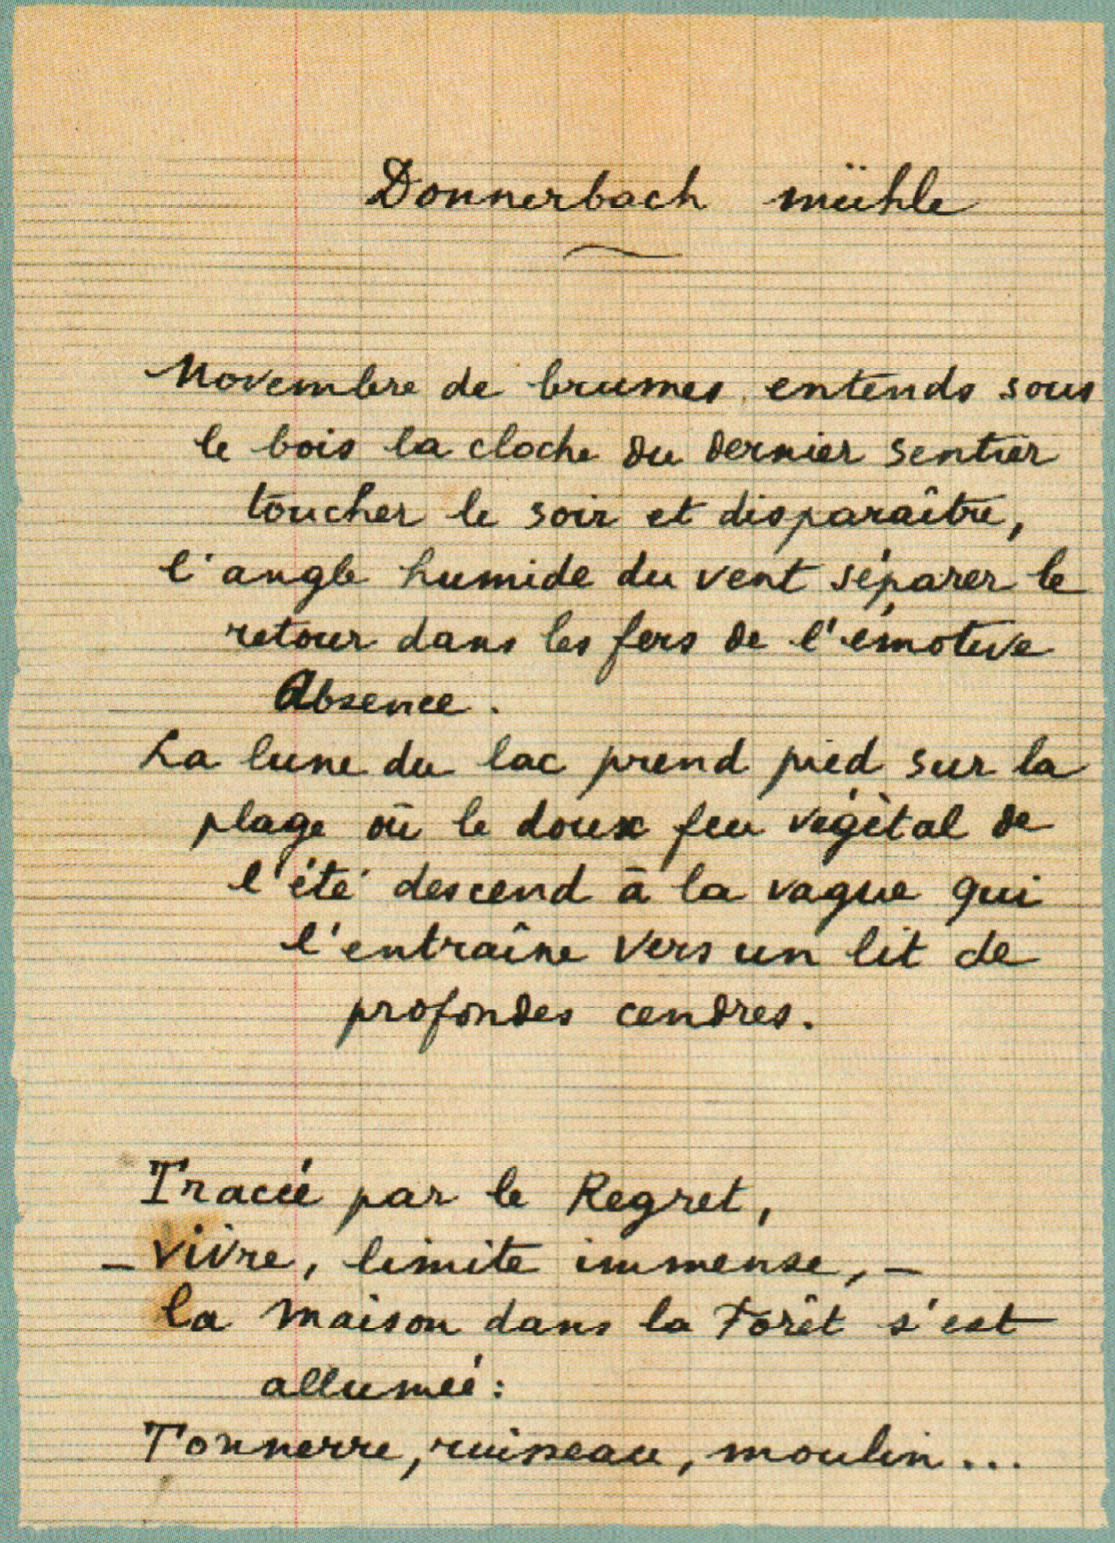 Donnerbach mühle
Novembre de brumes, entends sous
le bois la cloche du dernier sentier
toucher le soir et disparaître,
l'angle humide du vent séparer le
retour dans les fers de l'émotive
Absence.
La lune du lac prend pied sur la
plage où le doux feu végétal de
l'été descend à la vague qui
l'entraîne vers un lit de
profondes cendres.
Tracée par le Regret,
– vivre, limite immense, –
la maison dans la Forêt s'est
allumée:
Tonnerre, ruisseau, moulin...